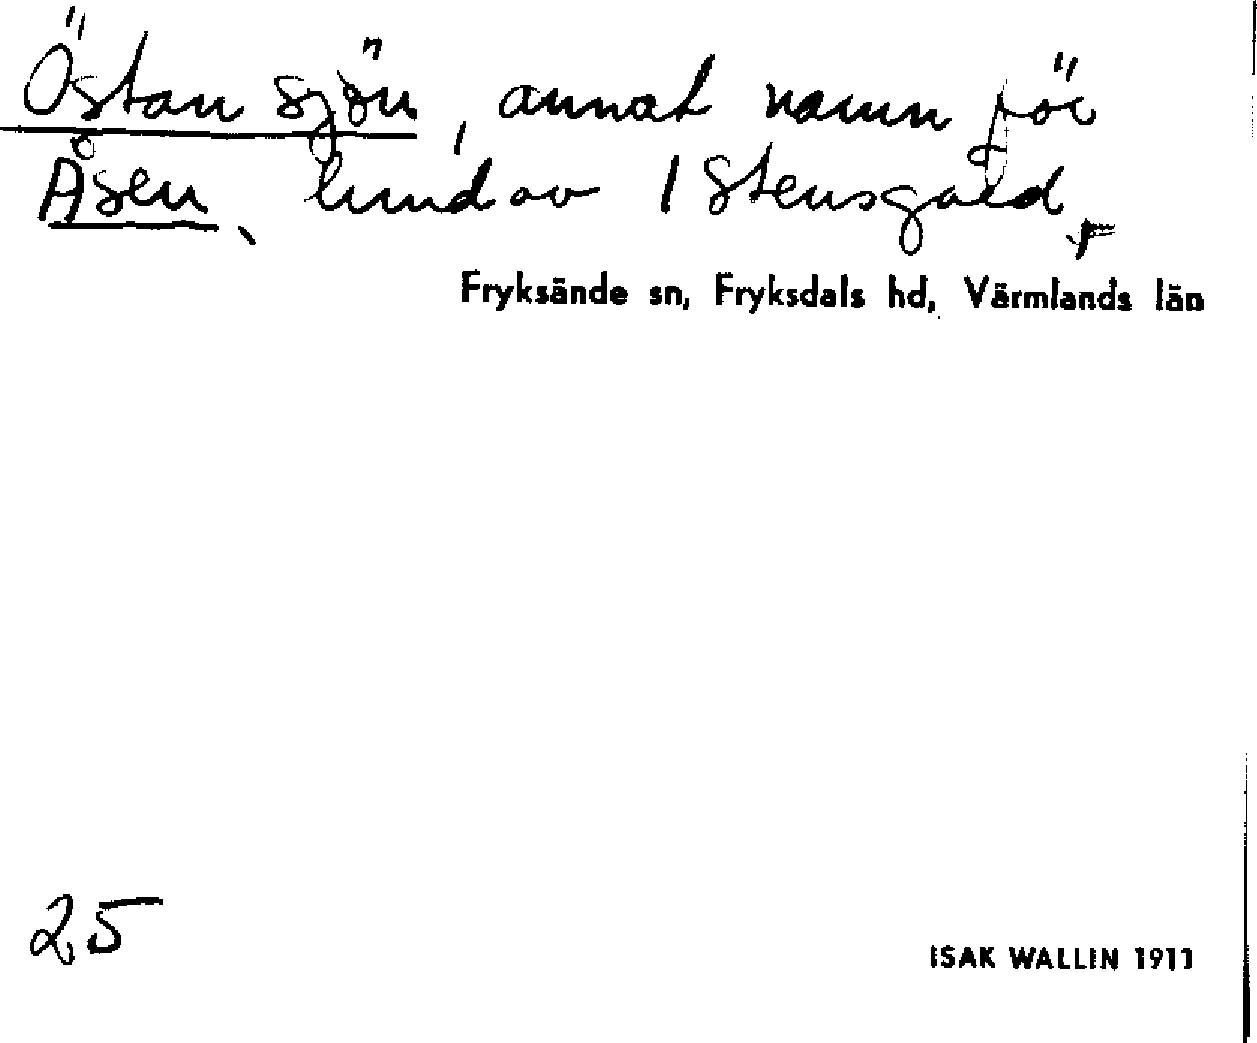 Östan sjön, annat namn för
Åsen, hmd av 1 Stensgård,
Fryksände sn, Fryksdals hd, Värmlands län
25
ISAK WALLIN 1911